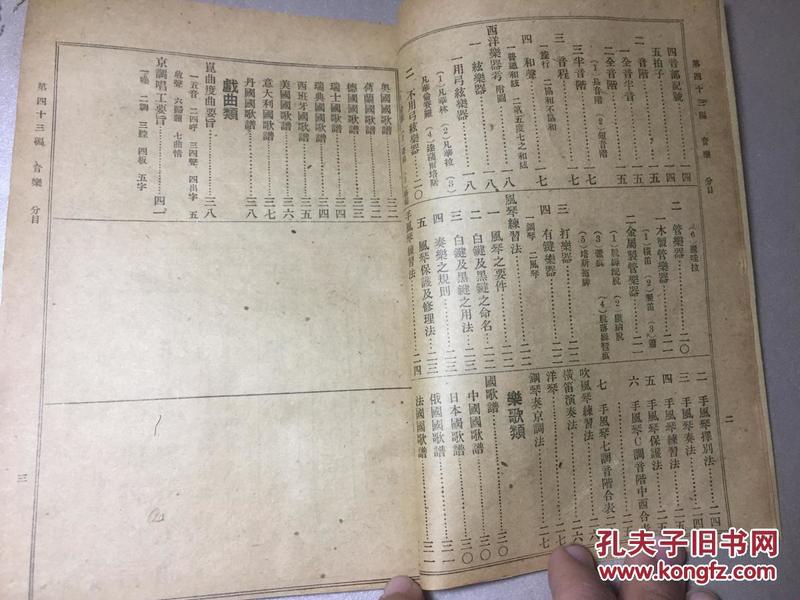 第四十三編 音樂 分目
二
四 音部記號 一四
五 拍子 一四
二 音階 一五
一 全音半音 一五
二 全音階 一五
(1) 長音階 (2) 短音階
三 半音階 一七
三 音程 一七
一 度行 二 協和不協和
四 和聲 一七
一 普通和絃 二 第五度七之和絃
西洋樂器考 附圖 一八
一 絃樂器 一八
一 用弓絃樂器 一八
(1) 凡華林 (2) 凡華拉 (3)
二 不用弓絃樂器 二〇
二 管樂器 二〇
一 木製管樂器
(1) 橫笛 (2) 豎笛 (3) 簫
二 金屬製管樂器 二一
三 打樂器 二一
四 有鍵樂器 二二
一 鋼琴 二 風琴
風琴練習法 二二
一 風琴之要件 二二
二 白鍵及黑鍵之命名 二二
三 白鍵及黑鍵之用法 二三
四 奏樂之規則 二三
五 風琴保護及修理法 二三
手風琴練習法 二四
二 手風琴擇別法 二四
三 手風琴奏法
四 手風琴練習法
五 手風琴保護法 二五
六 手風琴C調音階中西合表
七 手風琴七調音階合表
吹風琴練習法
橫笛演奏法 二六
洋琴
鋼琴奏京調法 二七
樂歌類
國歌譜 三〇
中國國歌譜 三〇
日本國歌譜 三〇
俄國國歌譜 三一
法國國歌譜 三一
奧國國歌譜 三二
荷蘭國歌譜 三二
德國國歌譜 三三
瑞士國歌譜 三四
瑞典國國歌譜 三四
西班牙國歌譜 三五
美國國歌譜 三六
意大利國歌譜 三七
丹國國歌譜 三八
戲曲類
崑曲度曲要旨 三八
一 五音 二 四呼 三 四聲 四 出字 五
收聲 六 歸韻 七 曲情
京調唱工要旨 四一
一 嗓 二 調 三 腔 四 板 五 字
第四十三編 音樂 分目
三
孔夫子旧书网
www.kongfz.com